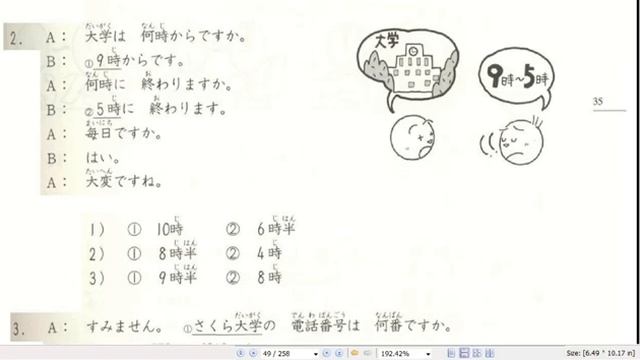 2. A： 大学は 何時からですか。
B： ①9時からです。
A： 何時に 終わりますか。
B： ②5時に 終わります。
A： 毎日ですか。
B： はい。
A： 大変ですね。
大学
9時～5時
35
1) ① 10時 ② 6時半
2) ① 8時半 ② 4時
3) ① 9時半 ② 8時
3. A： すみません。 ①さくら大学の 電話番号は 何番ですか。
49 / 258
192.42%
Size: [6.49 * 10.17 in]